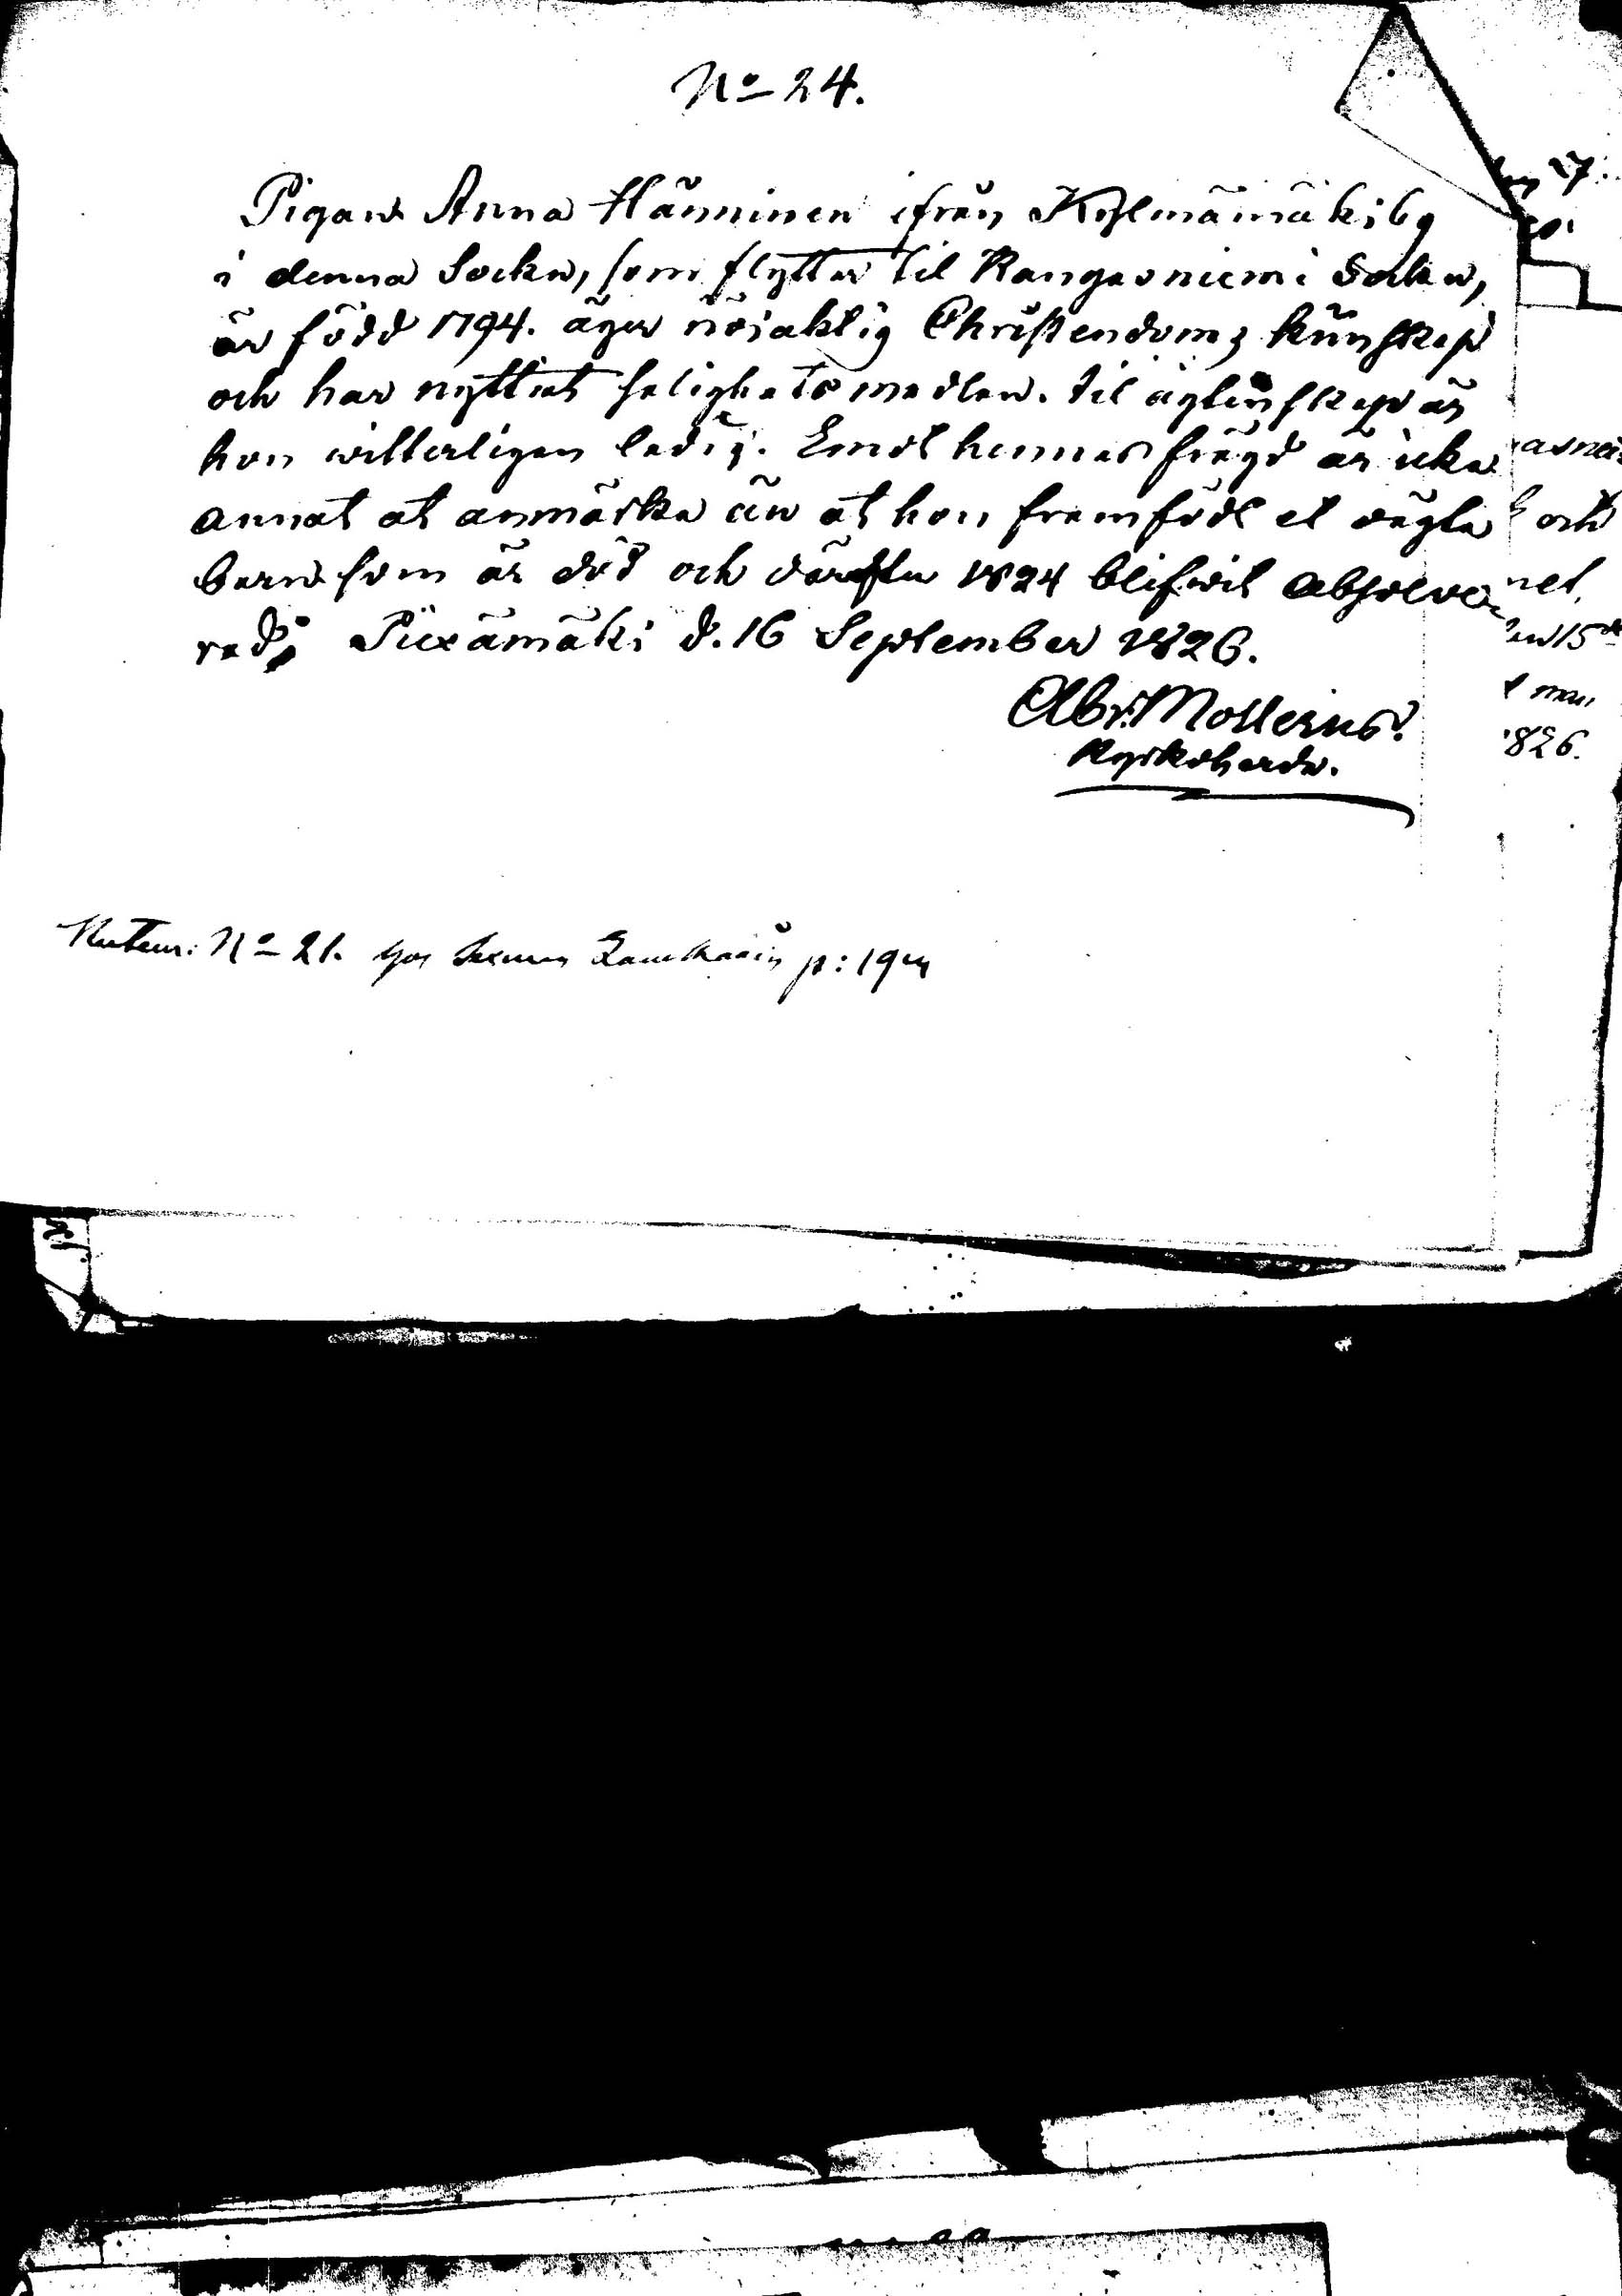 No 24.
Pigan Anna Hänninen ifrån Kylmämäki by
i denna Sockn, som flyttar til Kangasniemi Sockn,
är född 1794. äger nöjaktig Christendoms kunskap
och har nyttiat salighets medlen. til ägtenskap är
hon witterligen ledig. Emot hennes frägd är icke
annat at anmärka än at hon framfödt et oägta
barn som är död och därföre 1824 blifwit absolve-
rad; Piexämäki d. 16 September 1826.
Abr: Mollerus.
Kyrkoherde.
No 21. hos p: 194
och
15
1826.